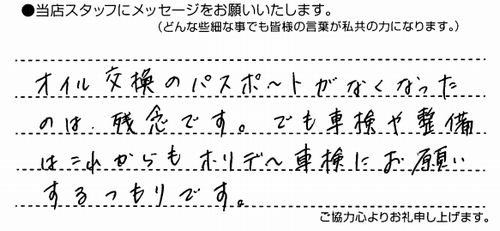 ●当店スタッフにメッセージをお願いいたします。
（どんな些細な事でも皆様の言葉が私共の力になります。）
オイル交換のパスポートがなくなった
のは、残念です。でも車検や整備
はこれからもホリデ～車検にお願い
するつもりです。
ご協力心よりお礼申し上げます。